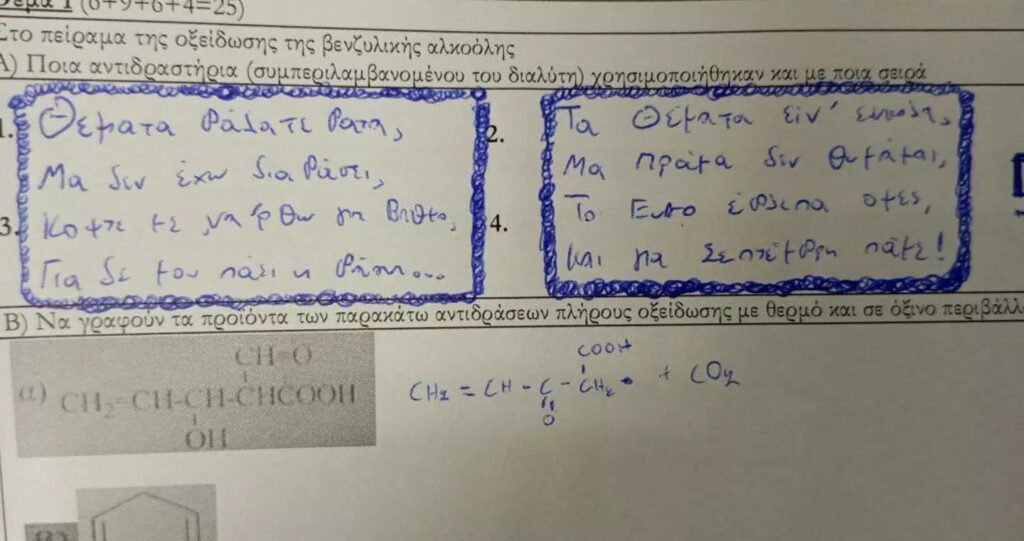 Θέμα 1 (6+9+6+4=25)
Στο πείραμα της οξείδωσης της βενζυλικής αλκοόλης
Α) Ποια αντιδραστήρια (συμπεριλαμβανομένου του διαλύτη) χρησιμοποιήθηκαν και με ποια σειρά
1.
Θέματα βάλατε βατα,
Μα δεν έχω διαβάσει,
3.
Κοψτε με να 'ρθω για
Για δε μου πάει η
2.
Τα Θέματα είν' εύκολα,
Μα πράμα δεν θυμάμαι,
4.
Το έβλεπα οψές,
Και για Σεπτέμβρη πάμε!
Β) Να γραφούν τα προϊόντα των παρακάτω αντιδράσεων πλήρους οξείδωσης με θερμό και σε όξινο περιβάλλ
CH=O
α) CH₂=CH-CH-CHCOOH
OH
COOH
CH₂ = CH - C - CH₂ + CO₂
O
β)